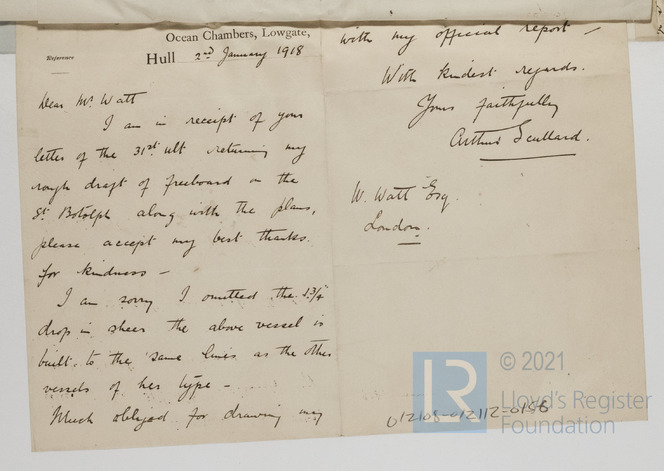 Ocean Chambers, Lowgate,
Reference
Hull 2nd January 1918
Dear Mr. Watt
I am in receipt of your
letter of the 31st ult returning my
rough draft of freeboard on the
St. Botolph along with the plans,
please accept my best thanks
for kindness –
I am sorry I omitted the 1 3/4"
drop in sheer the above vessel is
built to the same lines as the other
vessels of her type –
Much obliged for drawing my
with my official report –
With kindest regards.
Yours faithfully
Arthur Scullard.
W. Watt Esq.
London.
012108-012112-0186
LR
© 2021
Lloyd's Register
Foundation